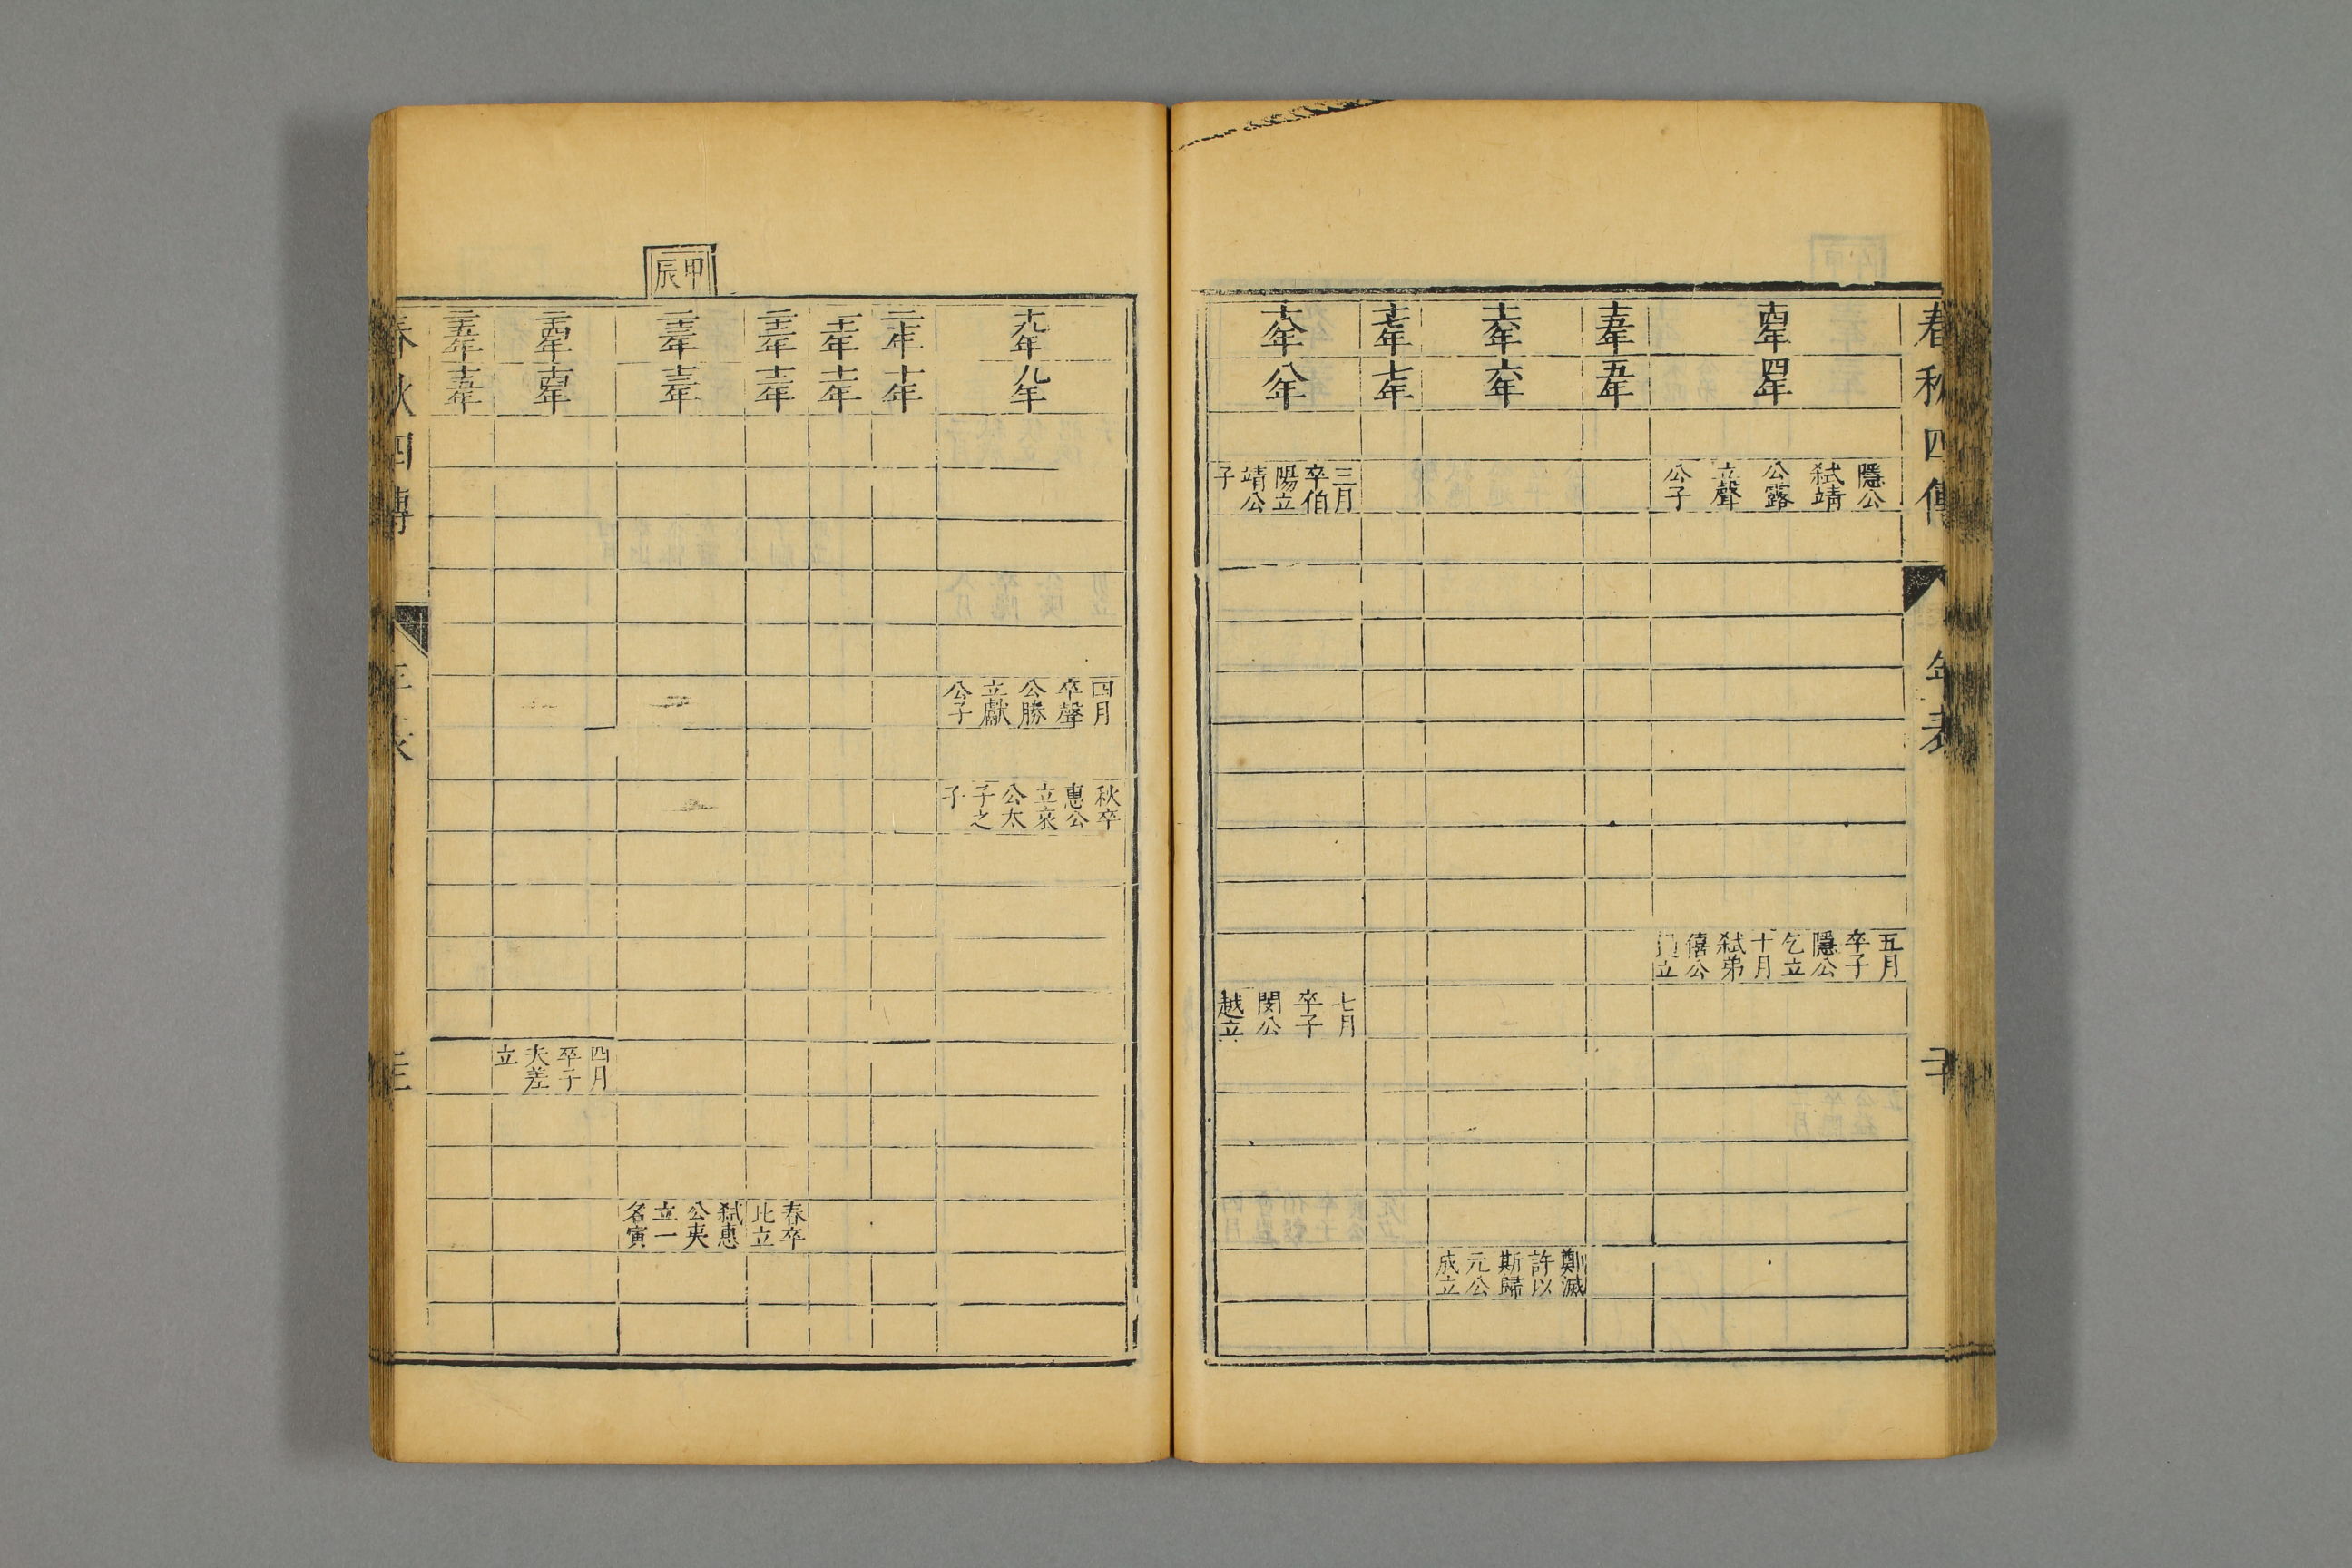 春秋四傳
年表
十四年
四年
隱公
弑靖
公露
立聲
公子
五月
卒子
隱公
乞立
十月
弑弟
僖公
立
十五年
五年
十六年
六年
鄭滅
許以
斯歸
元公
成立
十七年
七年
十八年
八年
三月
卒伯
陽立
靖公
子
七月
卒子
閔公
越立
十九年
九年
四月
卒聲
公勝
立獻
公子
秋卒
惠公
立哀
公太
子之
子
二十年
十年
二十一年
十一年
二十二年
十二年
春卒
比立
甲辰
二十三年
十三年
弑惠
公夷
立一
名寅
二十四年
十四年
四月
卒子
夫差
立
二十五年
十五年
春秋四傳
年表